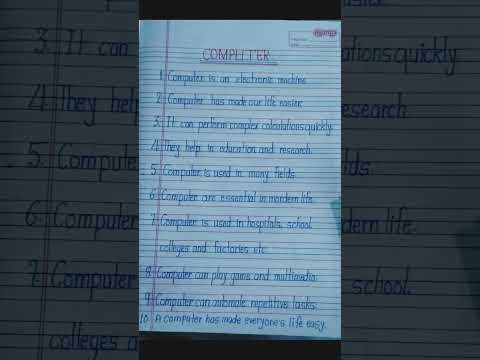 COMPUTER
1. Computer is an electronic machine.
2. Computer has made our life easier.
3. It can perform complex calculations quickly.
4. They help in education and research.
5. Computer is used in many fields.
6. Computer are essential in mordern life.
7. Computer is used in hospitals, school
colleges and factories etc.
8. Computer can play game and multimedia.
9. Computer can automate repetitive tasks.
10. A computer has made everyone's life easy.
3. It can
4. They help
5. Computer
6. Computer
7. Computer
colleges a
calculations quickly
research.
fields.
mordern life.
school.